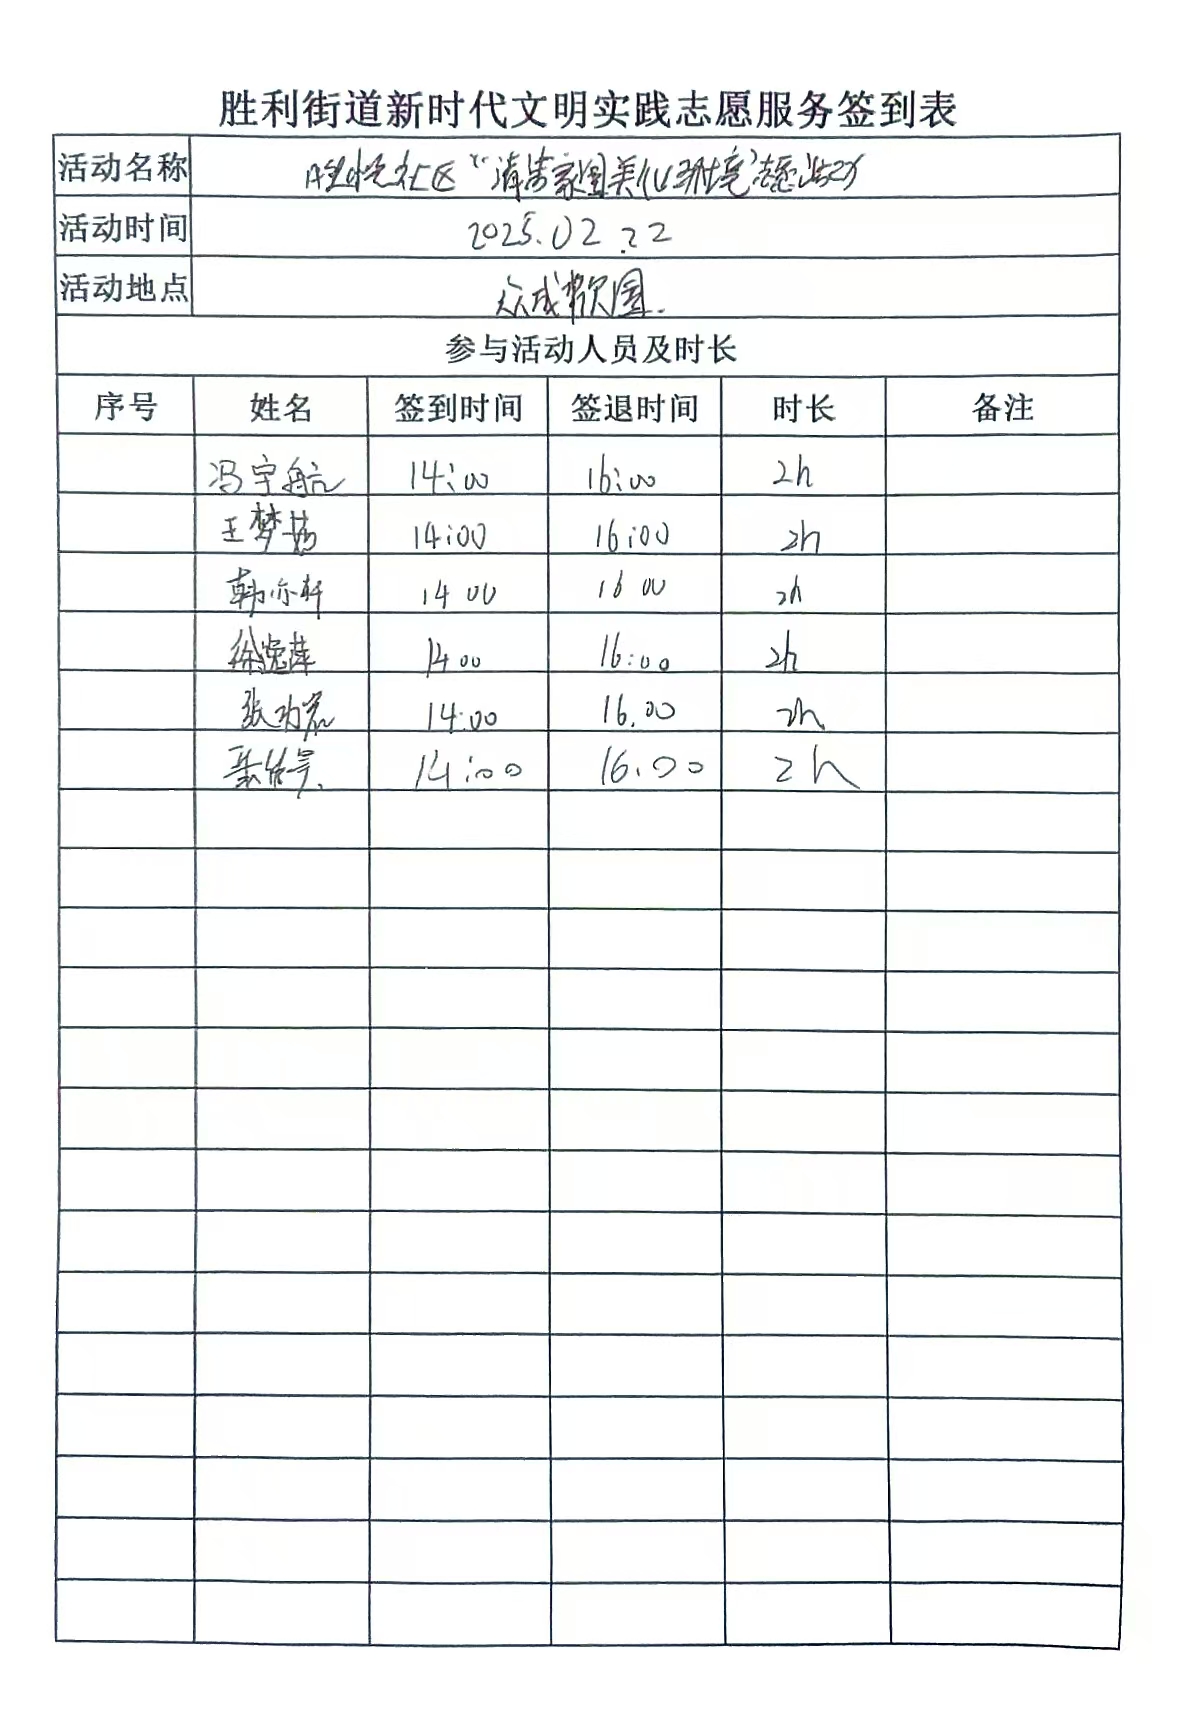 胜利街道新时代文明实践志愿服务签到表
活动名称 社区“清洁家园美化环境”志愿活动
活动时间 2025.02.22
活动地点 众成 园
参与活动人员及时长
序号 姓名 签到时间 签退时间 时长 备注
冯宇航 14:00 16:00 2h
王梦 14:00 16:00 2h
韩亦轩 14 00 16 00 2h
徐 萍 14 00 16:00 2h
张 14:00 16.00 2h
14:00 16.00 2h